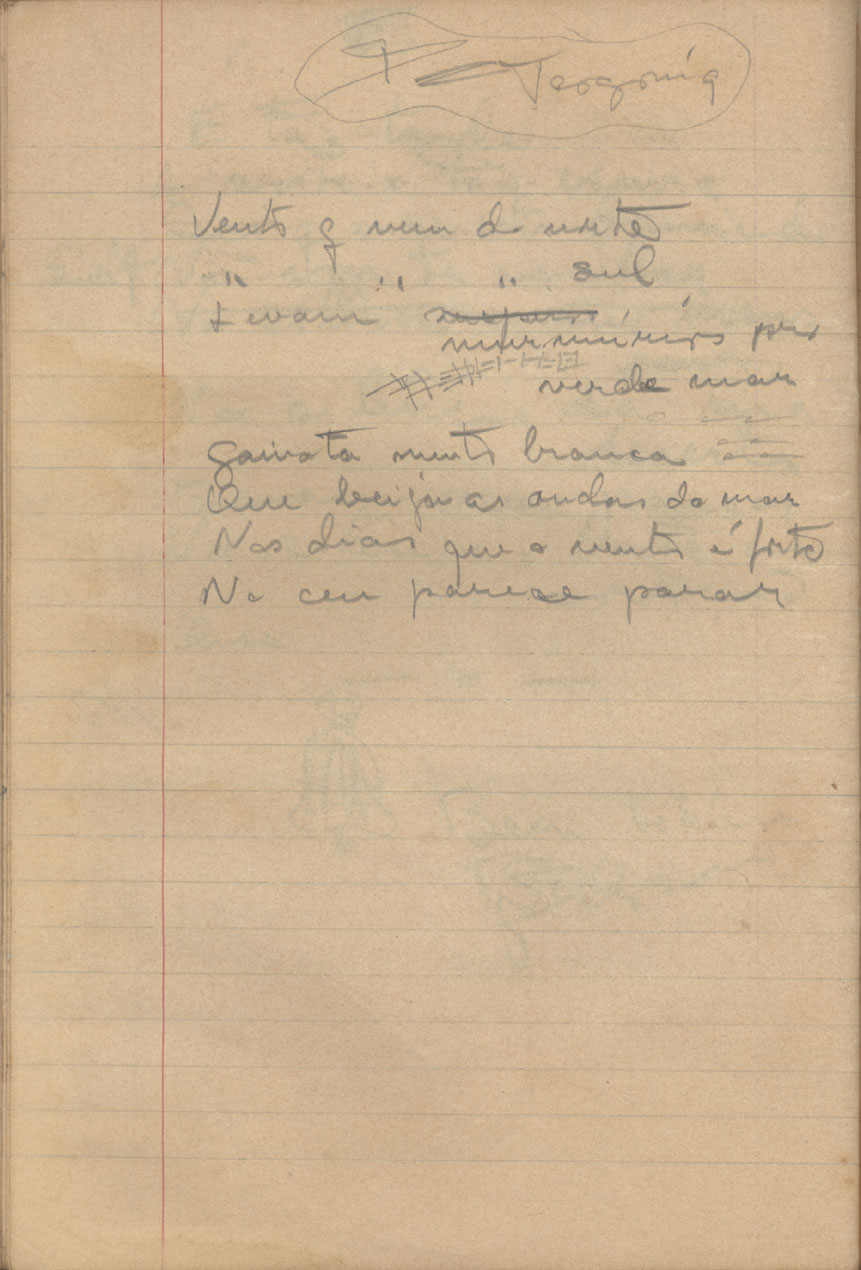 Teogonia
Vento q vem do norte
" " " sul
Levam
murmúrios pro
verde mar
Gaivota muito branca
Que beija as ondas do mar
Nos dias que o vento é forte
No ceu parece parar